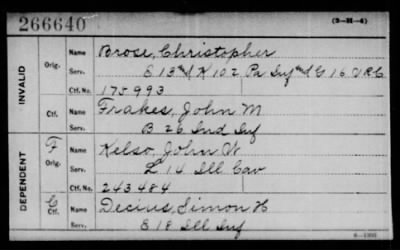 266640
(3-H-4)
INVALID
Orig.
Name Brose, Christopher
Serv. E 13 & K 102 Pa Inf and G 16 V.R.C.
Ctf. No. 175993
Ctf.
Name Frakes, John M
Serv. B 26 Ind Inf
DEPENDENT
F
Orig.
Name Kelso, John W
Serv. L 14 Ill Cav
Ctf. No. 243484
C
Ctf.
Name Decius, Simon H
Serv. E 18 Ill Inf